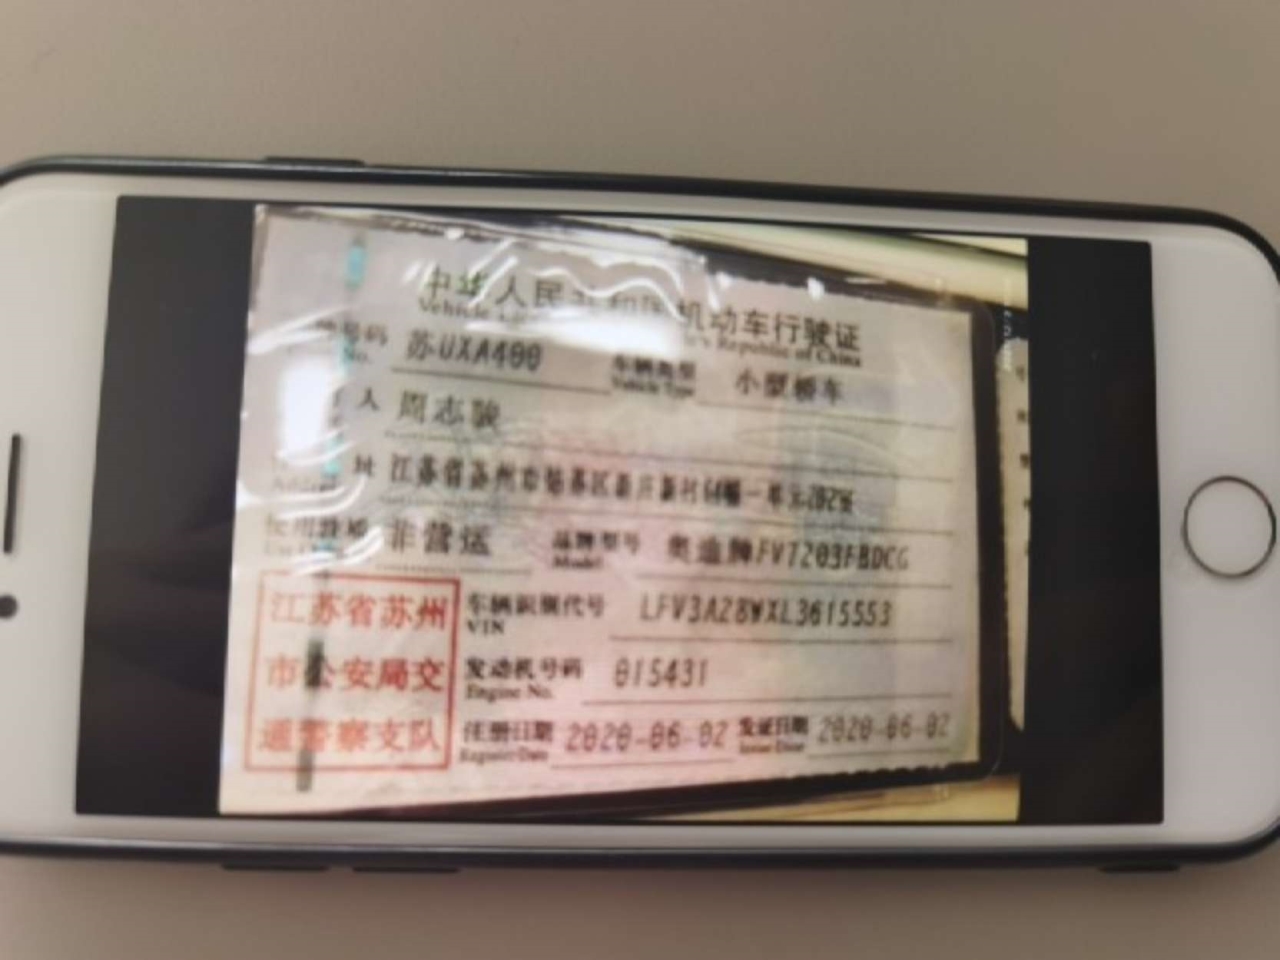 中华人民共和国机动车行驶证
Vehicle
's Republic of China
号码 苏UXA400 车辆类型 小型轿车
No. Vehicle Type
人 周志骏
址 江苏省苏州市姑苏区新庄新村64幢一单元202室
使用性质 非营运 品牌型号 奥迪牌FV7203FBDCG
Model
江苏省苏州 车辆识别代号 LFV3A28WXL3615553
VIN
市公安局交 发动机号码 015431
Engine No.
通警察支队 注册日期 2020-06-02 发证日期 2020-06-02
Register Date Issue Date